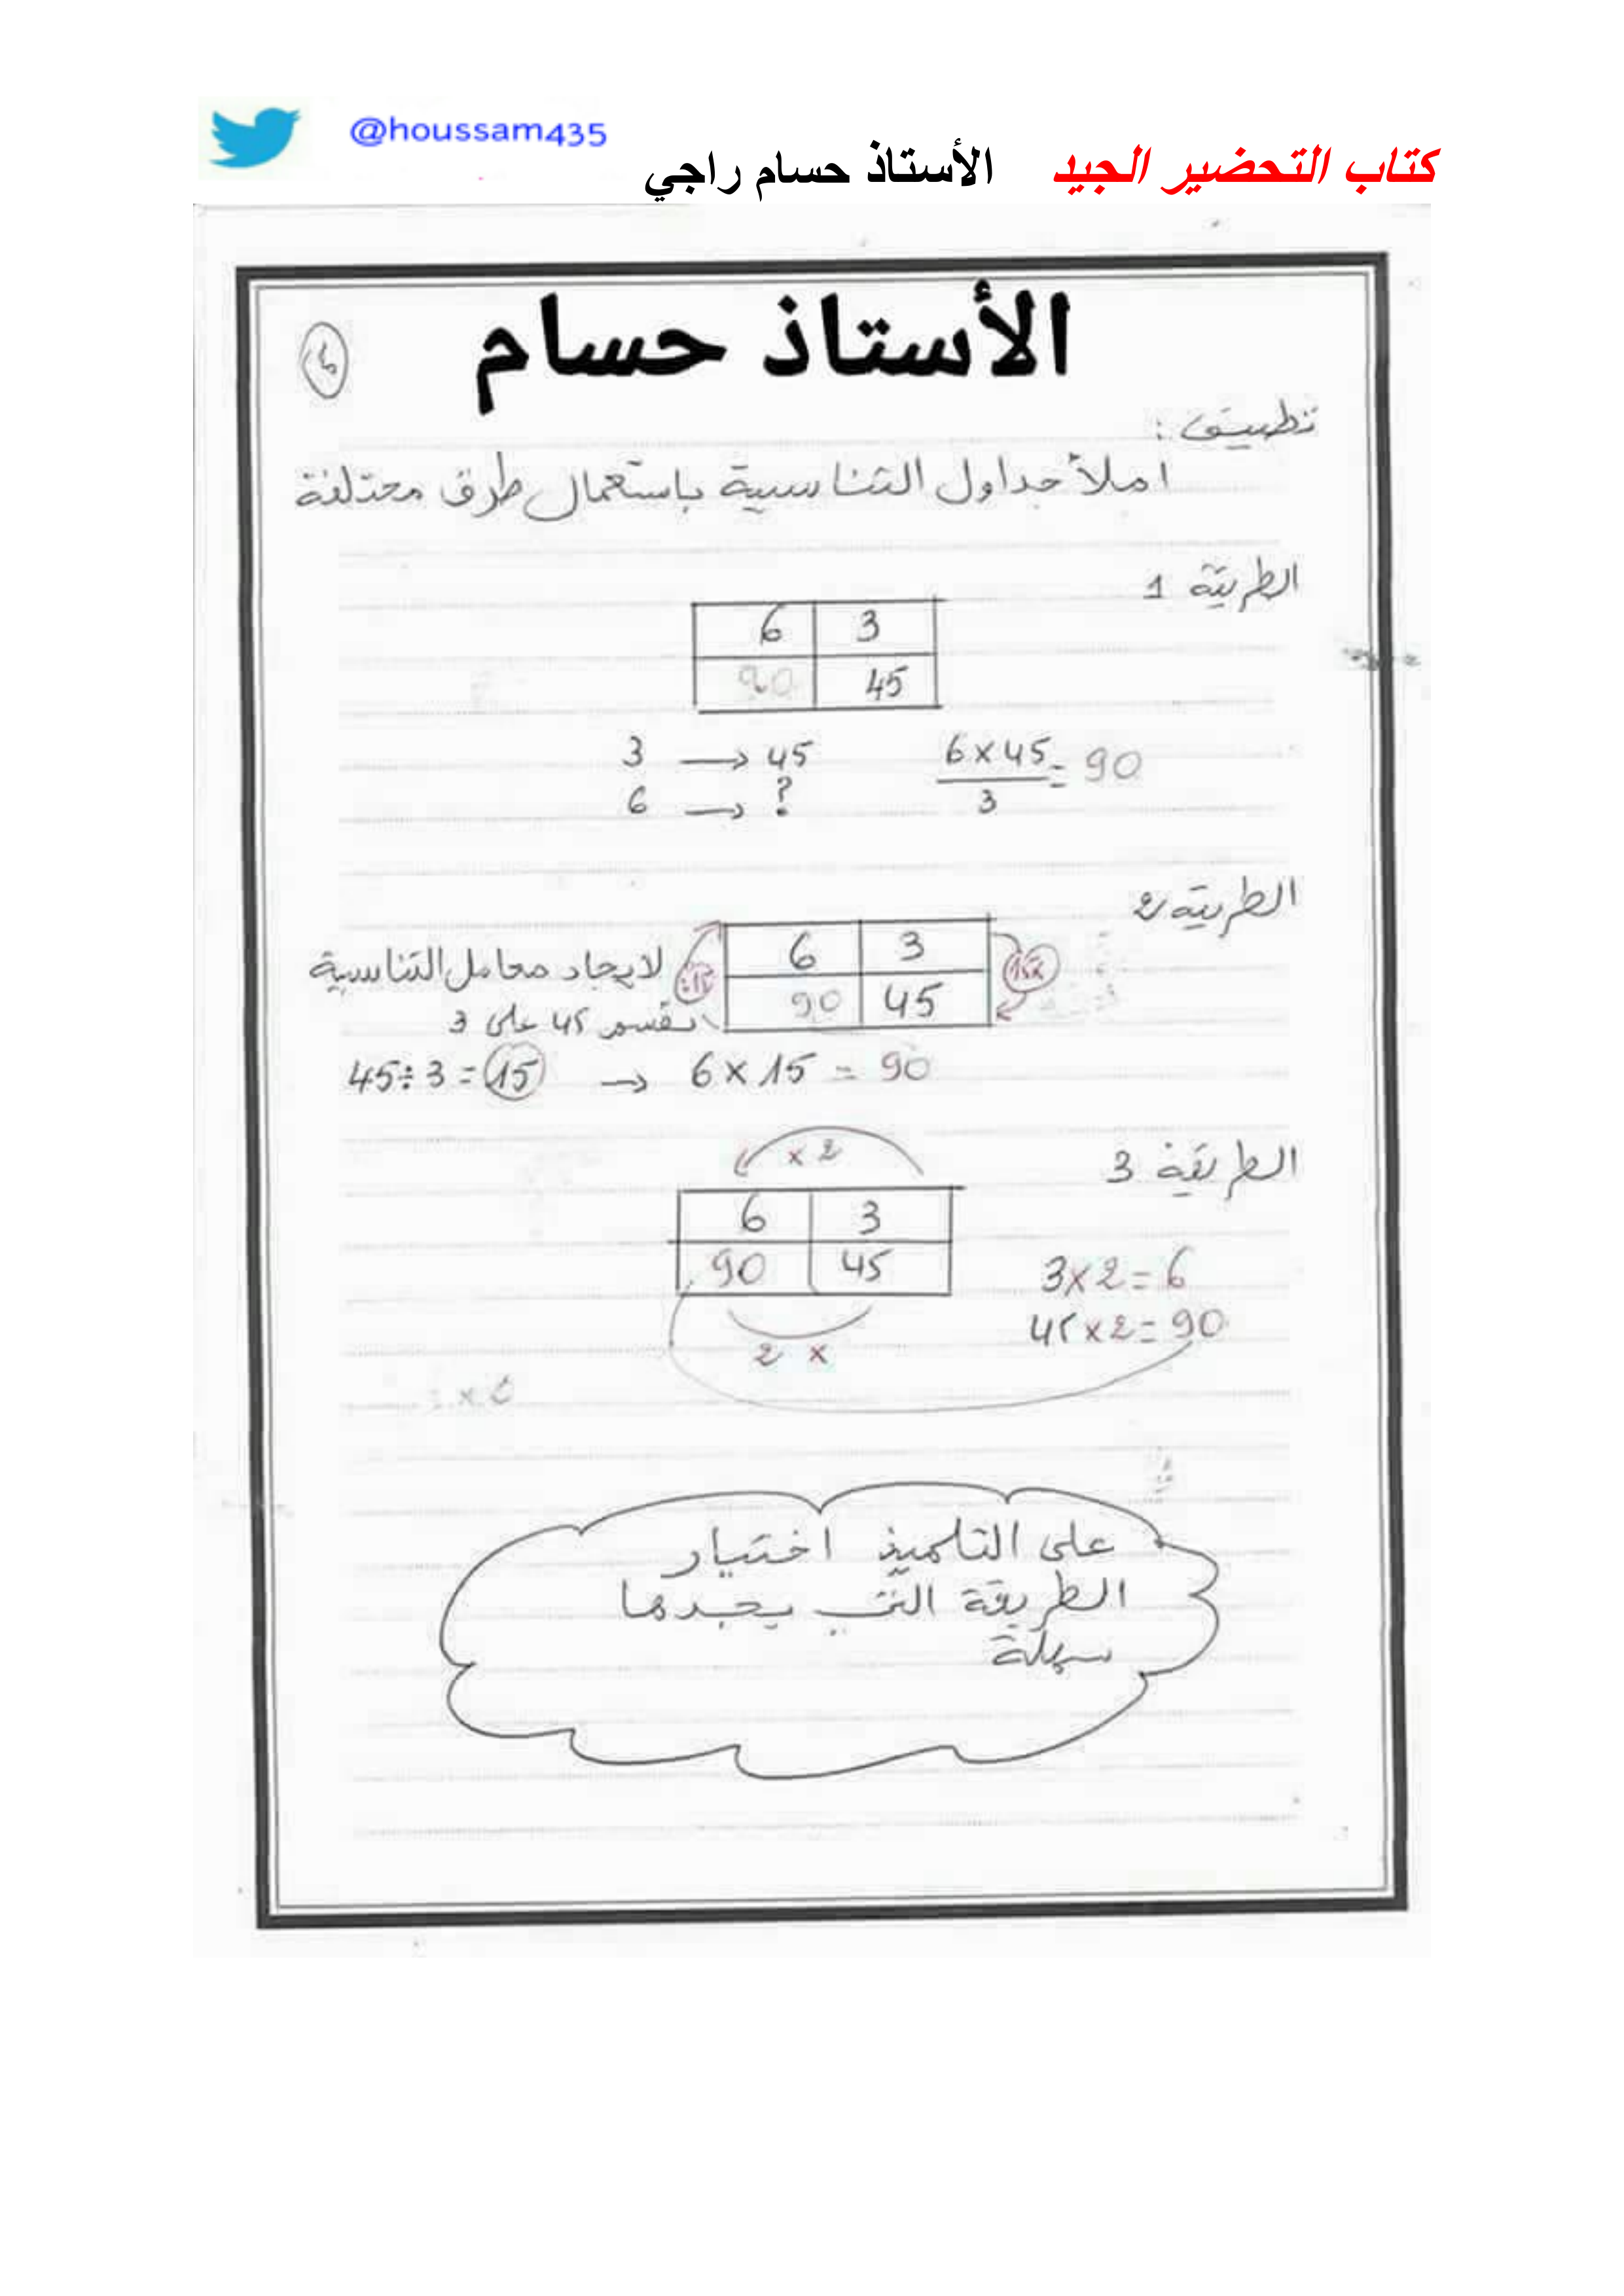 @houssam435
كتاب التحضير الجيد الأستاذ حسام راجي
الأستاذ حسام
تطبيق :
املأ جداول التناسبية باستعمال طرق مختلفة
الطريقة 1
6 3
90 45
3 → 45
6 → ?
6 x 45 / 3 = 90
الطريقة 2
6 3
90 45
15x
:15
لايجاد معامل التناسبية
نقسم 45 على 3
45÷3 = 15 → 6 x 15 = 90
الطريقة 3
x 2
6 3
90 45
2 x
3x2=6
45x2=90
على التلميذ اختيار
الطريقة التي يجدها
سهلة